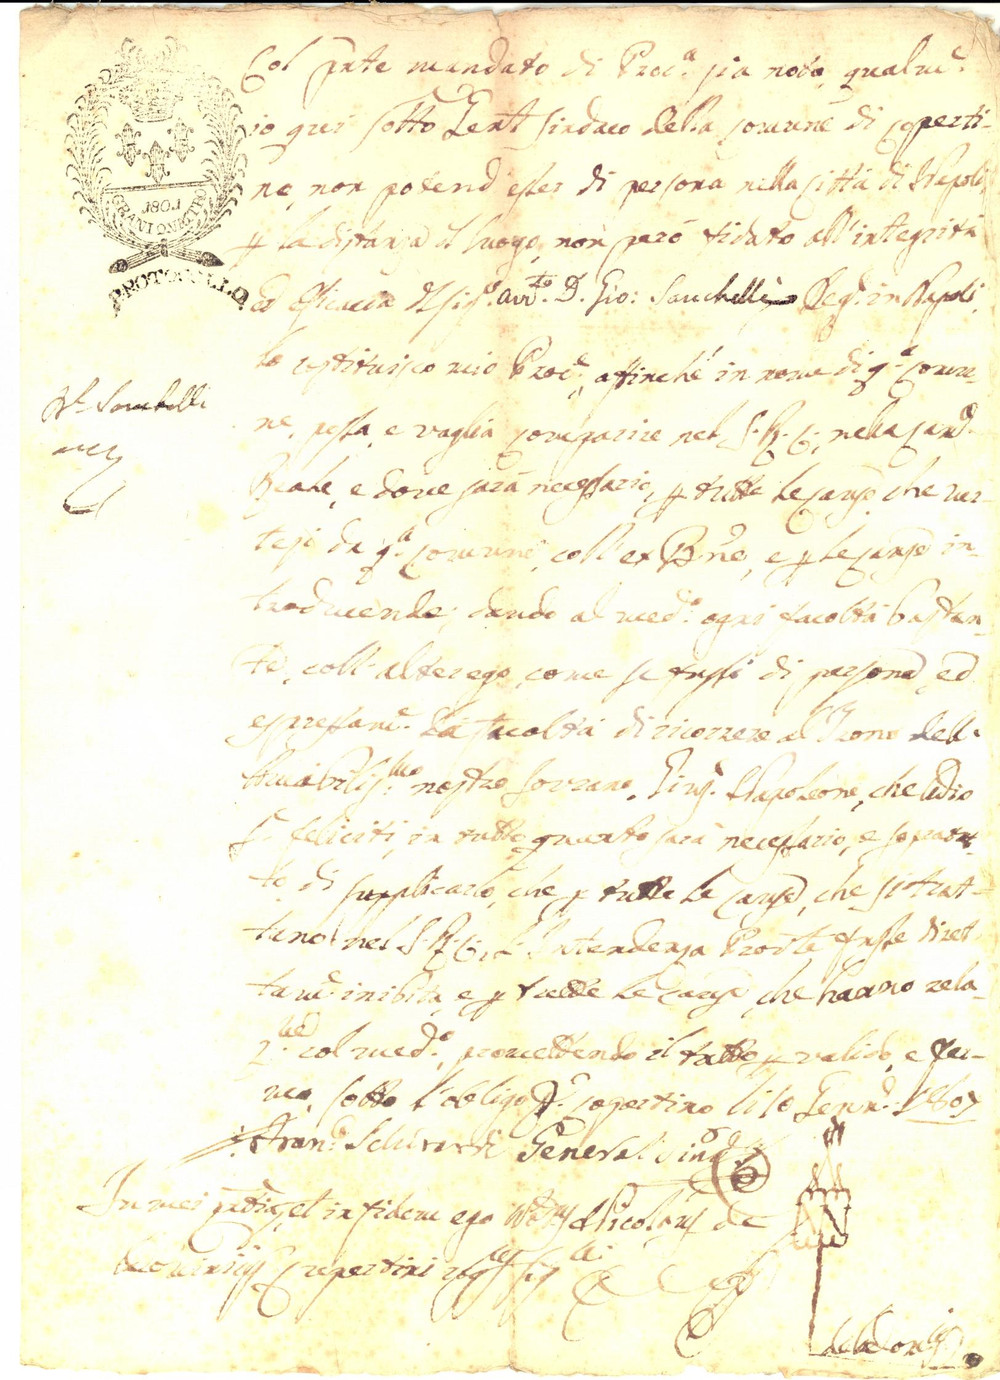 Col pnte mandato di Proc.a sia noto, qualm.e
io qui sotto Gen.l Sindaco della comune di Coperti-
no, non potend' esser di persona nella Città di Napoli,
p la distanza del luogo, non però fidato all'integrità
ed efficacia del sig.r avv.to D. Gio: Sauchelli Reg.o in Napoli,
lo costituisco mio Proc.re, affinché in nome di q.a comu-
ne, possa, e vaglia comparire nel S. R. C., nella Cam.a
Reale, e dove sarà necessario, p tutte le cause, che ver-
tesi da q.a comune, coll' ex B.ne, e p le cause in-
troducende; dando al med.o ogni facoltà bastan-
te, coll' alter ego, come se fussi di persona, ed
espressam.e la facoltà di ricorrere al Trono dell'
Amabiliss.mo nostro Sovrano, Gius.e Napoleone, che Iddio
feliciti, in tutto quanto sarà necessario, e soprattut-
to di supplicarlo, che p tutte le cause, che si trat-
tano nel S. R. C., l'Intendenza Prov.le fusse diret-
tam.e inibita, e p tutte le cause, che hanno rela-
z.ne col med.o, promettendo il tutto p valido, e fer-
mo, sotto l'obligo Copertino li 10 Genn.o 1807
Fran.o Generali Sind.o
PROTOCOLLO
1807
GRANI
V.o Sauchelli
In mei pntia, et in fidem ego Not.s Nicolaus de
Cupertini